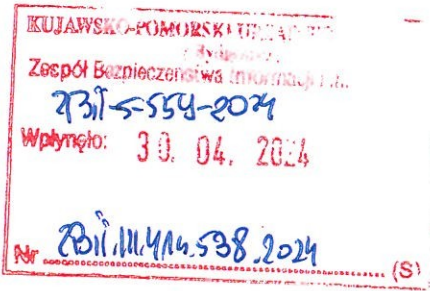 KUJAWSKO-POMORSKI URZĄD
Zespół Bezpieczeństwa Informacji i
ZBiI-S-554-2024
Wpłynęło: 30. 04. 2024
Nr ZBiI.III.414.538.2024 (S)